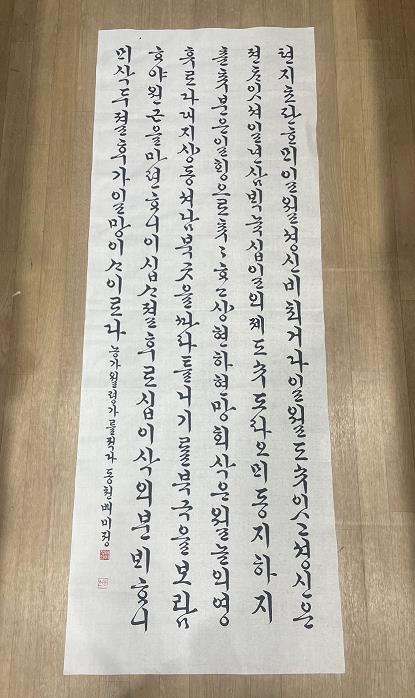 텬지초판ᄒᆞᄆᆡ일월셩신비최거다일월도수잇고셩신은
젼ᄎᆞ잇셔일년삼ᄇᆡᆨ뉵십일의제도수도라오ᄆᆡ동지하지
츈츄분은일ᄒᆡᆼ으로츄ᄒᆞ고상현하현망회삭은월눌의영
휴로다ᄃᆡ지상동셔남북곳을ᄯᅡ라틀니기를북극을보람
ᄒᆞ야원근을마련ᄒᆞ니이십ᄉᆞ졀후로십이삭의분ᄇᆡᄒᆞ니
ᄆᆡ삭두졀후가일망이ᄉᆞ이로다 농가월령가를적다 동천백미정